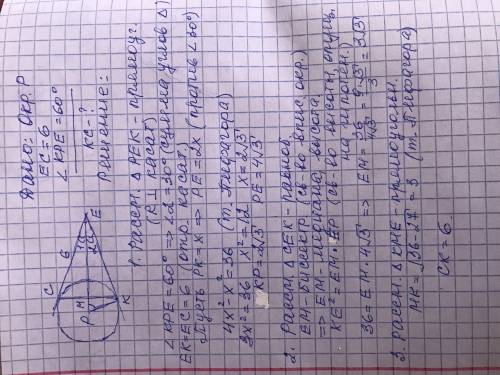 Дано: Окр. P
EC=6
∠KPE=60°
KC-?
Решение:
C
6
E
P
M
K
1. Рассм. △PEK - прямоуг.
(R ⊥ касат)
∠KPE=60° => ∠2=30° (сумма углов △)
EK=EC=6 (отр. касат)
Пусть PK=x => PE=2x (против ∠30°)
4x²-x²=36 (т. Пифагора)
3x²=36 x²=12 x=2√3
KP=2√3 PE=4√3
2. Рассм. △CEK - равноб.
EM-биссектр (св-во впис. окр.)
=> EM-медиана, высота.
KE²=EM·EP (св-во высоты, опущ.
на гипотен.)
36=EM·4√3 => EM=36/4√3=9√3/3=3√3
3. Рассм. △KME-прямоугольн.
MK=√36-27=3 (т. Пифагора)
CK=6.